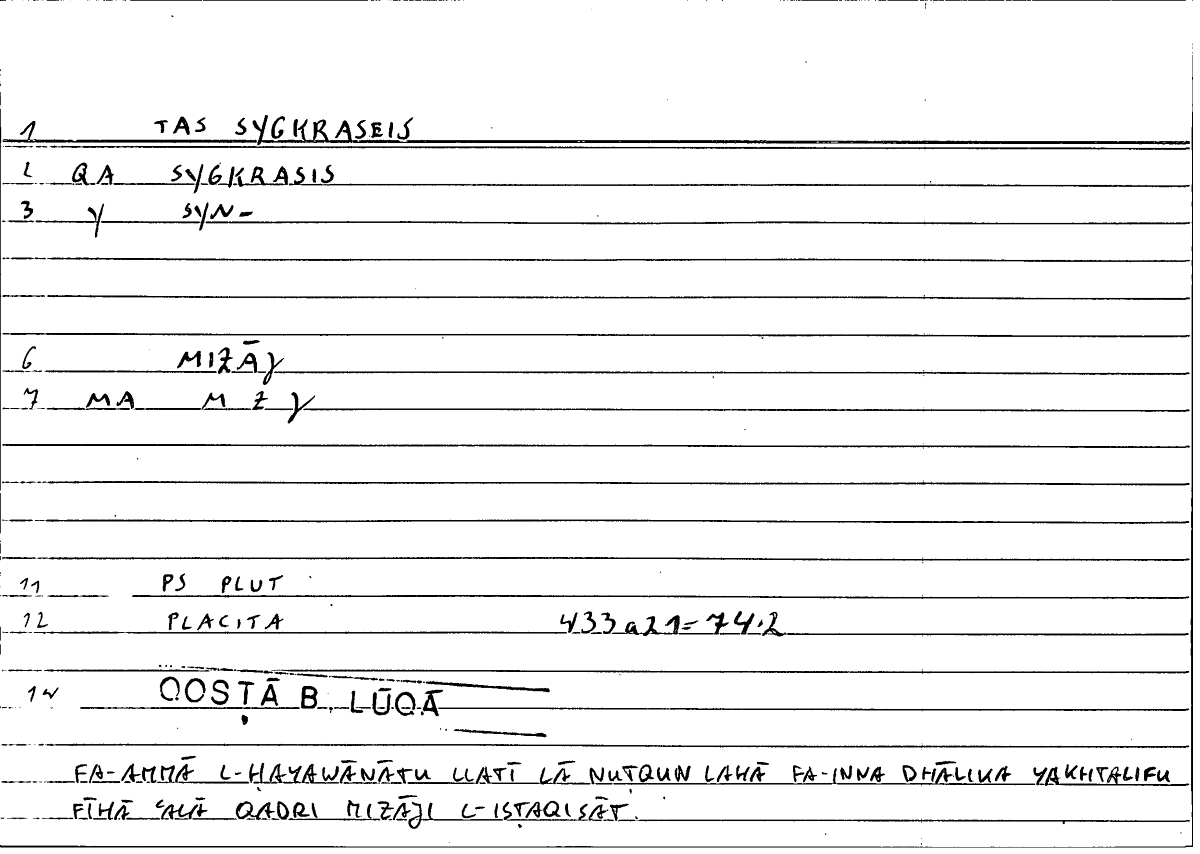 1 TAS SYGKRASEIS
2 QA SYGKRASIS
3 Y SYN-
6 MIZĀJ
7 MA M Z J
11 PS PLUT
12 PLACITA 433a21=74.2
14 QOSṬĀ B. LŪQĀ
FA-AMMĀ L-ḤAYAWĀNĀTU LLATĪ LĀ NUṬQUN LAHĀ FA-INNA DHĀLIKA YAKHTALIFU
FĪHĀ ʿALĀ QADRI MIZĀJI L-ISṬAQISĀT.